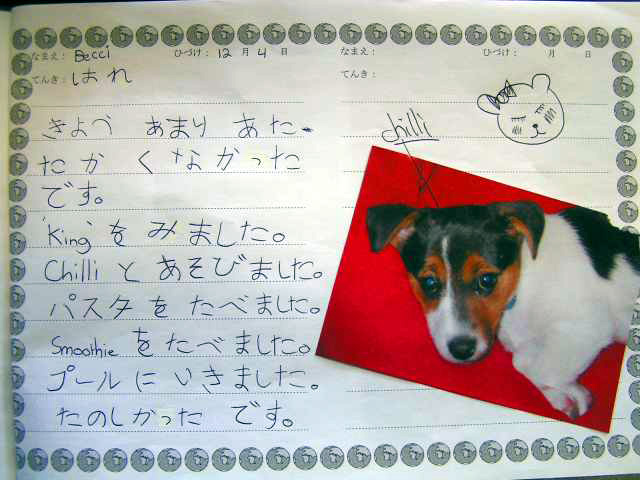 なまえ: Becci ひづけ: 12 月 4 日
てんき: はれ
きょう あまり あた
たかくなかった
です。
'King' をみました。
Chilli とあそびました。
パスタをたべました。
Smoothie をたべました。
プールにいきました。
たのしかった です。
なまえ: ひづけ: 月 日
てんき:
chilli